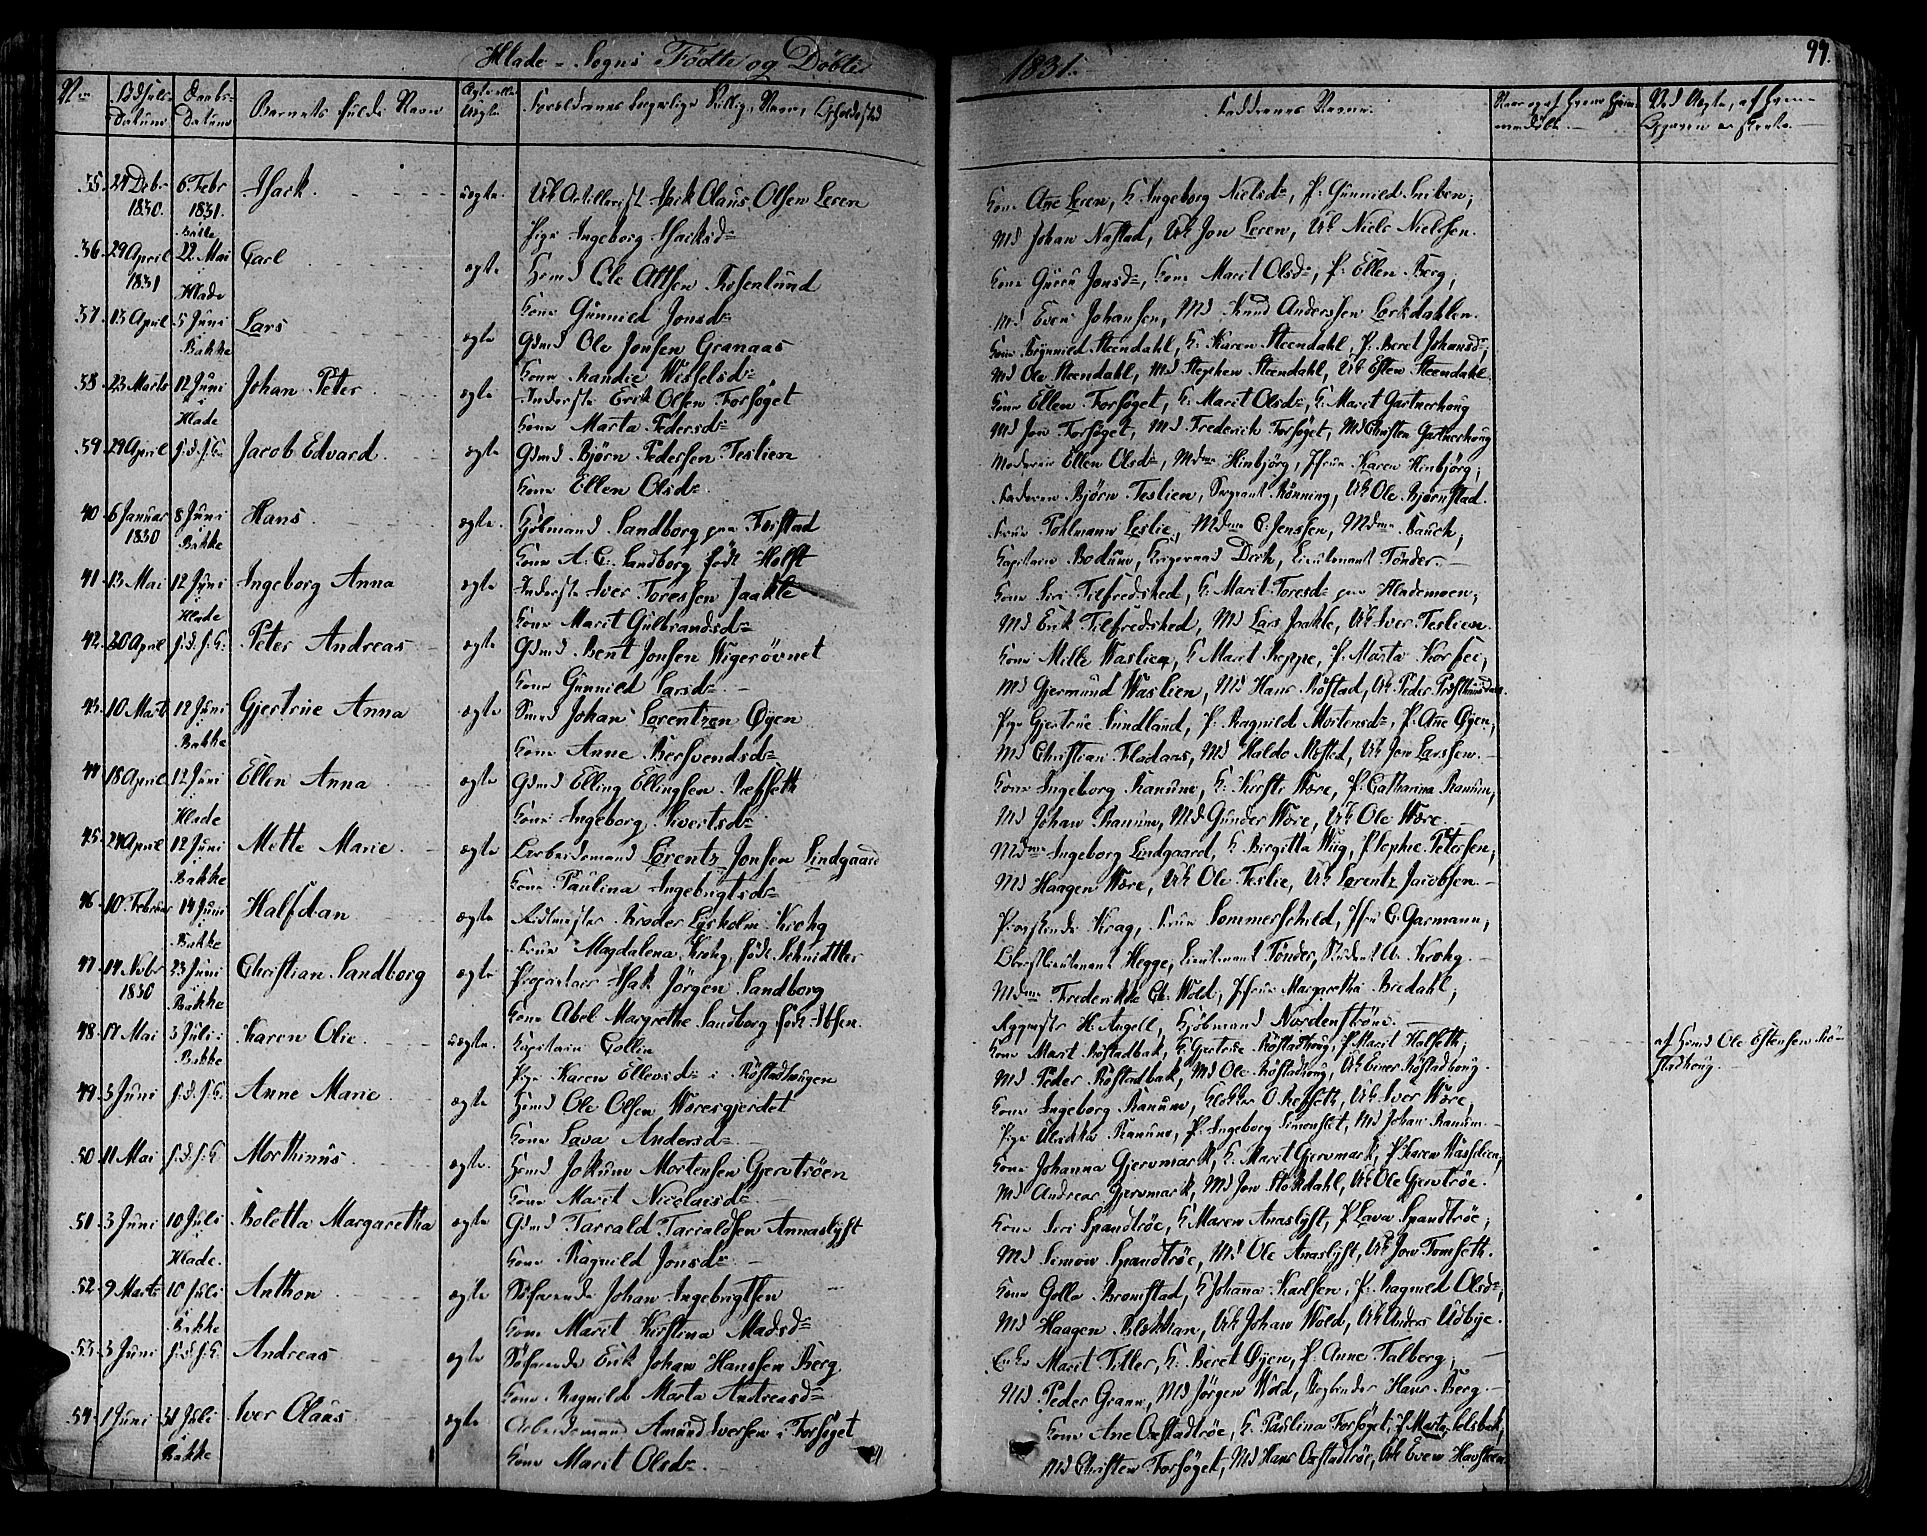 Hlade-Sogns Fødte og Døbte
1831.
97.
No Fødsels-Datum Daabs-Datum Barnets fulde Navn Ægte eller Uægte Forældrenes borgerlige Stilling, Navn, Opholdssted
Faddrenes Navne.
35. 1830. 6. Febr 1831. Isack uægte. Uk Artillerist Isack Olaus Olsen Leren
Pige Ingeborg Isacksd.
Kone Ane Leren, K. Ingeborg Nielsd., P. Gunnild
Md Johan Nastad, Uk Jon Leren, Uk Niels Nielsen.
36. 29 April 1831 22. Mai i Hlade Carl ægte Ole Rosenlund
Kone Gunnild Jonsd.
Kone Guru Jonsd., Kone Marit Olsd., P. Ellen Berg,
Md Even Johansen, Md Knud Anderssen Lerkdahlen.
37. 13 April 5 Juni i Bakke Lars ægte Gdmd Ole Jonsen Granaas
Kone Randie
Kone Steendahl, K. Karen Steendahl, P. Beret Johansd.,
Md Ole Steendahl, Md Stephen Steendahl, Uk Esten Steendahl.
38. 23 Marts 12 Juni i Hlade Johan Peter ægte Inderste Erik Olsen Forsøget
Kone Marta Pedersd.
Kone Ellen Forsøget, K. Marit Olsd., K. Marit Gartnerhoug
Md Jon Forsøget, Md Frederich Forsøget, Md Christen Gartnerhoug
39. 29 April s.d.s.K. Jacob Edvard ægte Gdmd Bjørn Pedersen Teslien
Kone Ellen Olsd.
Moderen Ellen Olsd., Mdme Hinbjørg, Jfrue Karen Hinbjørg,
Faderen Bjørn Teslien, Sergeant Rønning, Uk Ole Bjørnstad.
40 6 Januar 1830 8 Juni i Bakke Hans ægte. Kjøbmand Sandborg paa
Kone A. C. Sandborg født Holst
Frue Pohlmann Leslie, Mdme C. Jenssen, Mdme Bauch,
Kapitain Bodum, Lieutenant Tønder.
41 13 Mai 12 Juni i Hlade Ingeborg Anna ægte Inderste Iver Toressen Jaakle
Kone Marit Gulbrandsd.
Kone Siri Tilfredshed, K. Marit Toresd. paa Hlademoen,
Md Erik Tilfredshed, Md Lars Jaakle, Uk Iver Teslien.
42. 20 April s.d.s.K. Peter Andreas ægte Gdmd Bent Jonsen
Kone Gunnild Larsd.
Kone Mille Waslien, K. Marit Reppe, P. Marta
Md Gjermund Waslien, Md Hans Røstad, Uk Peder
43. 10 Marts 12 Juni i Bakke Gjertrue Anna ægte Smed Johan Lorentzen Øyen
Kone Anne Bersvendsd.
Pige Gjertrue Sundland, P. Ragnild Mortensd., P. Ane Øyen,
Md Christian Fladaas, Md Haldo Moksted, Uk Jon Larssen.
44 18 April 12 Juni i Hlade Ellen Anna ægte Gdmd Elling Ellingsen Refseth
Kone Ingeborg Sivertsd.
Kone Ingeborg Ranum, K. Kersti Være, P. Catharina Ranum,
Md Johan Ranum, Md Gunder Være, Uk Ole Være.
45. 24 April 12 Juni i Bakke Mette Marie ægte Arbeidsmand Lorentz Jonsen Lindgaard
Kone Paulina Ingebrigtsd.
Mdme Ingeborg Lindgaard, K. Birgitta Wiig, P. Sophie Petersen,
Md Haagen Være, Uk Ole Teslie, Uk Lorentz Jacobsen.
46 10. Februar 14 Juni i Bakke Halfdan ægte Ridtmester Broder Lysholm Krohg
Frue Magdalena Krohg, født Schmidtler
Provstinde Krag, Frue Sommerschild, Jfru C. Garmann,
Oberstlieutenant Hegge, Lieutenant Tønder, Student A. Krohg.
47 14 Novbr 1830 23 Juni i Bakke Christian Sandborg ægte Isak Jørgen Sandborg
Kone Abel Margrethe Sandborg født Ibsen.
Mdme Frederikke Ch. Wold, Jfrue Margaretha Bredahl,
H. Angell, Kjøbmand Nordenstrøm.
48 17 Mai 3 Juli i Bakke Karen Olie uægte. Kapitain Collin
Pige Karen Ellevsd. i Røstadhougen
Kone Marit Røstadbak, K. Gjertrue Røstadhoug, P. Marit Halseth,
Md Peder Røstadbak, Md Ole Røstadhoug, Uk Einer Røstadhoug.
af Hsmd Ole Estensen Røstadhoug.
49 3 Juni s.d.s.K. Anne Marie ægte Hsmd Ole Olsen Wæresgjerdet
Kone Lava Andersd.
Kone Ingeborg Ranum, Klokker O. Refseth, Uk Iver Være,
Pige Ulrikka Ranum, P. Ingeborg Simonslet, Md Johan Ranum.
50 11 Mai s.d.s.K. Morthinus ægte. Hsmd Jokum Mortensen Gjervtrøen
Kone Marit Nicolaisd.
Kone Johanna Gjervmark, K. Marit Gjervmark, P. Karen Wasslien,
Md Andreas Gjervmark, Md Jon Stokdahl, Uk Ole Gjervtrøe.
51. 3 Juni 10 Juli i Hlade. Boletta Margaretha ægte Gdmd Tarrald Tarraldsen Annaslyst
Kone Ragnild Jonsd.
Kone Siri Spandtrøe, K. Maren Anaslyst, P. Lava Spandtrøe,
Md Simon Spandtrøe, Md Ole Anaslyst, Uk Jon Tomseth.
52. 9 Marts 10 Juli i Bakke Anthon ægte Søfarende Johan Ingebrigtsen
Kone Marit Kirstina Madsd.
Kone Golla Bromstad, K. Johanna Karlsen, P. Ragnild Olsd.,
Md Haagen Blekkan, Uk Johan Wold, Uk Anders Udbye.
53. 3 Juni s.d.s.K. Andreas ægte Søfarende Erik Johan Hanssen Berg
Kone Ragnild Marta Andreasd.
Enke Marit Tiller, K. Beret Øyen, P. Anne Talberg,
Md Peder Grann, Md Jørgen Wold, Hans Berg
54. 1 Juni 31 Juli i Bakke Iver Olaus ægte Arbeidsmand Amund Iversen i Forsøget
Kone Marit Olsd.
Kone Ane Oxstadtrøe, K. Paulina Forsøget, P. Marta Selsbak,
Md Christen Forsøget, Md Hans Oxstadtrøe, Uk Even Havsteen